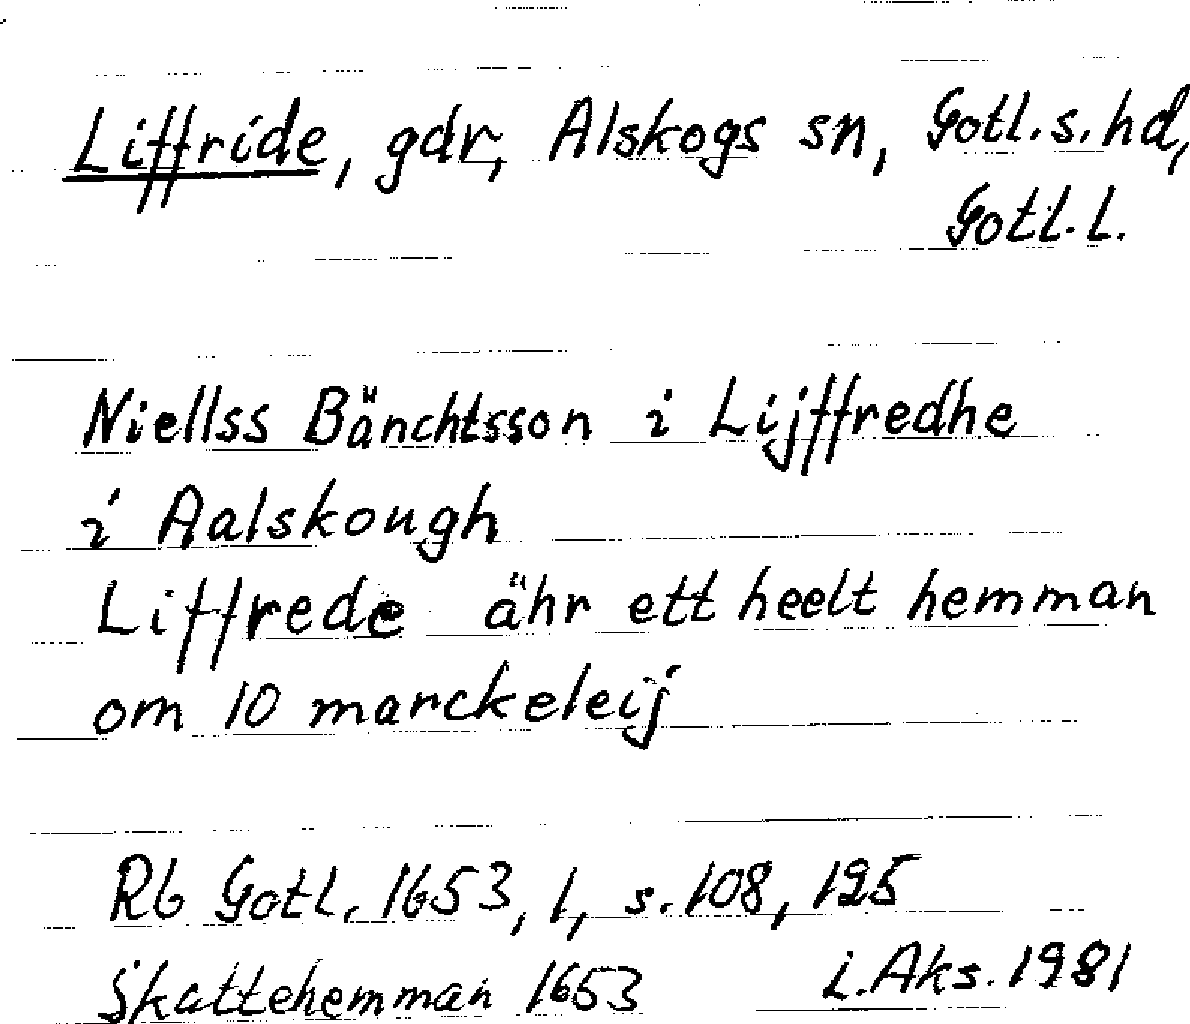 Liffride, gdr, Alskogs sn, Gotl. s. hd,
Gotl. l.
Niellss Bänchtsson i Lijffredhe
i Aalskough
Liffrede ähr ett heelt hemman
om 10 marckeleij
Rb Gotl. 1653, 1, s. 108, 125
Skattehemman 1653 L. Aks. 1981